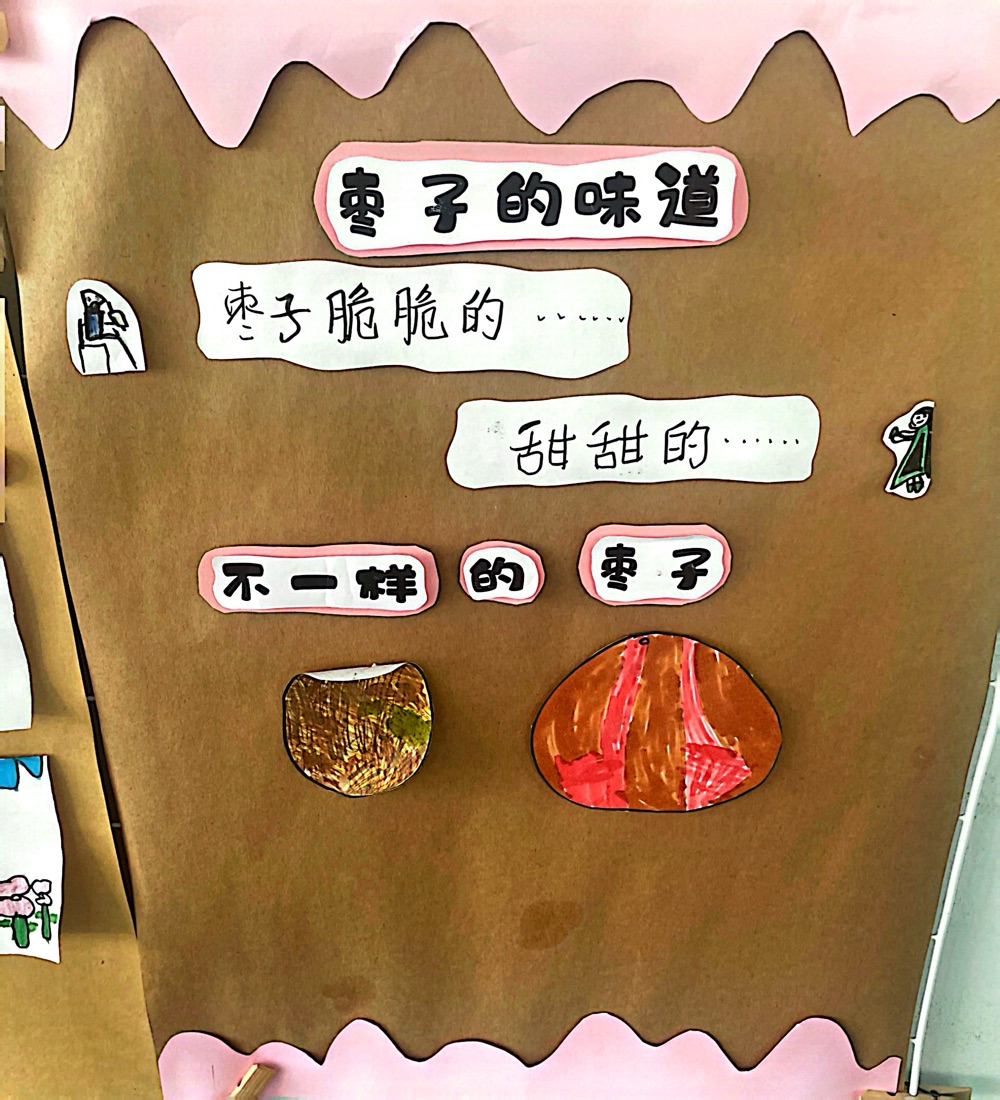 枣子的味道
枣子脆脆的……
甜甜的……
不一样的枣子